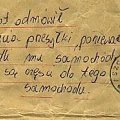 ot odmówił
nia przesyłki, ponieważ
mu samochodu
są męsu do tego
samochodu.